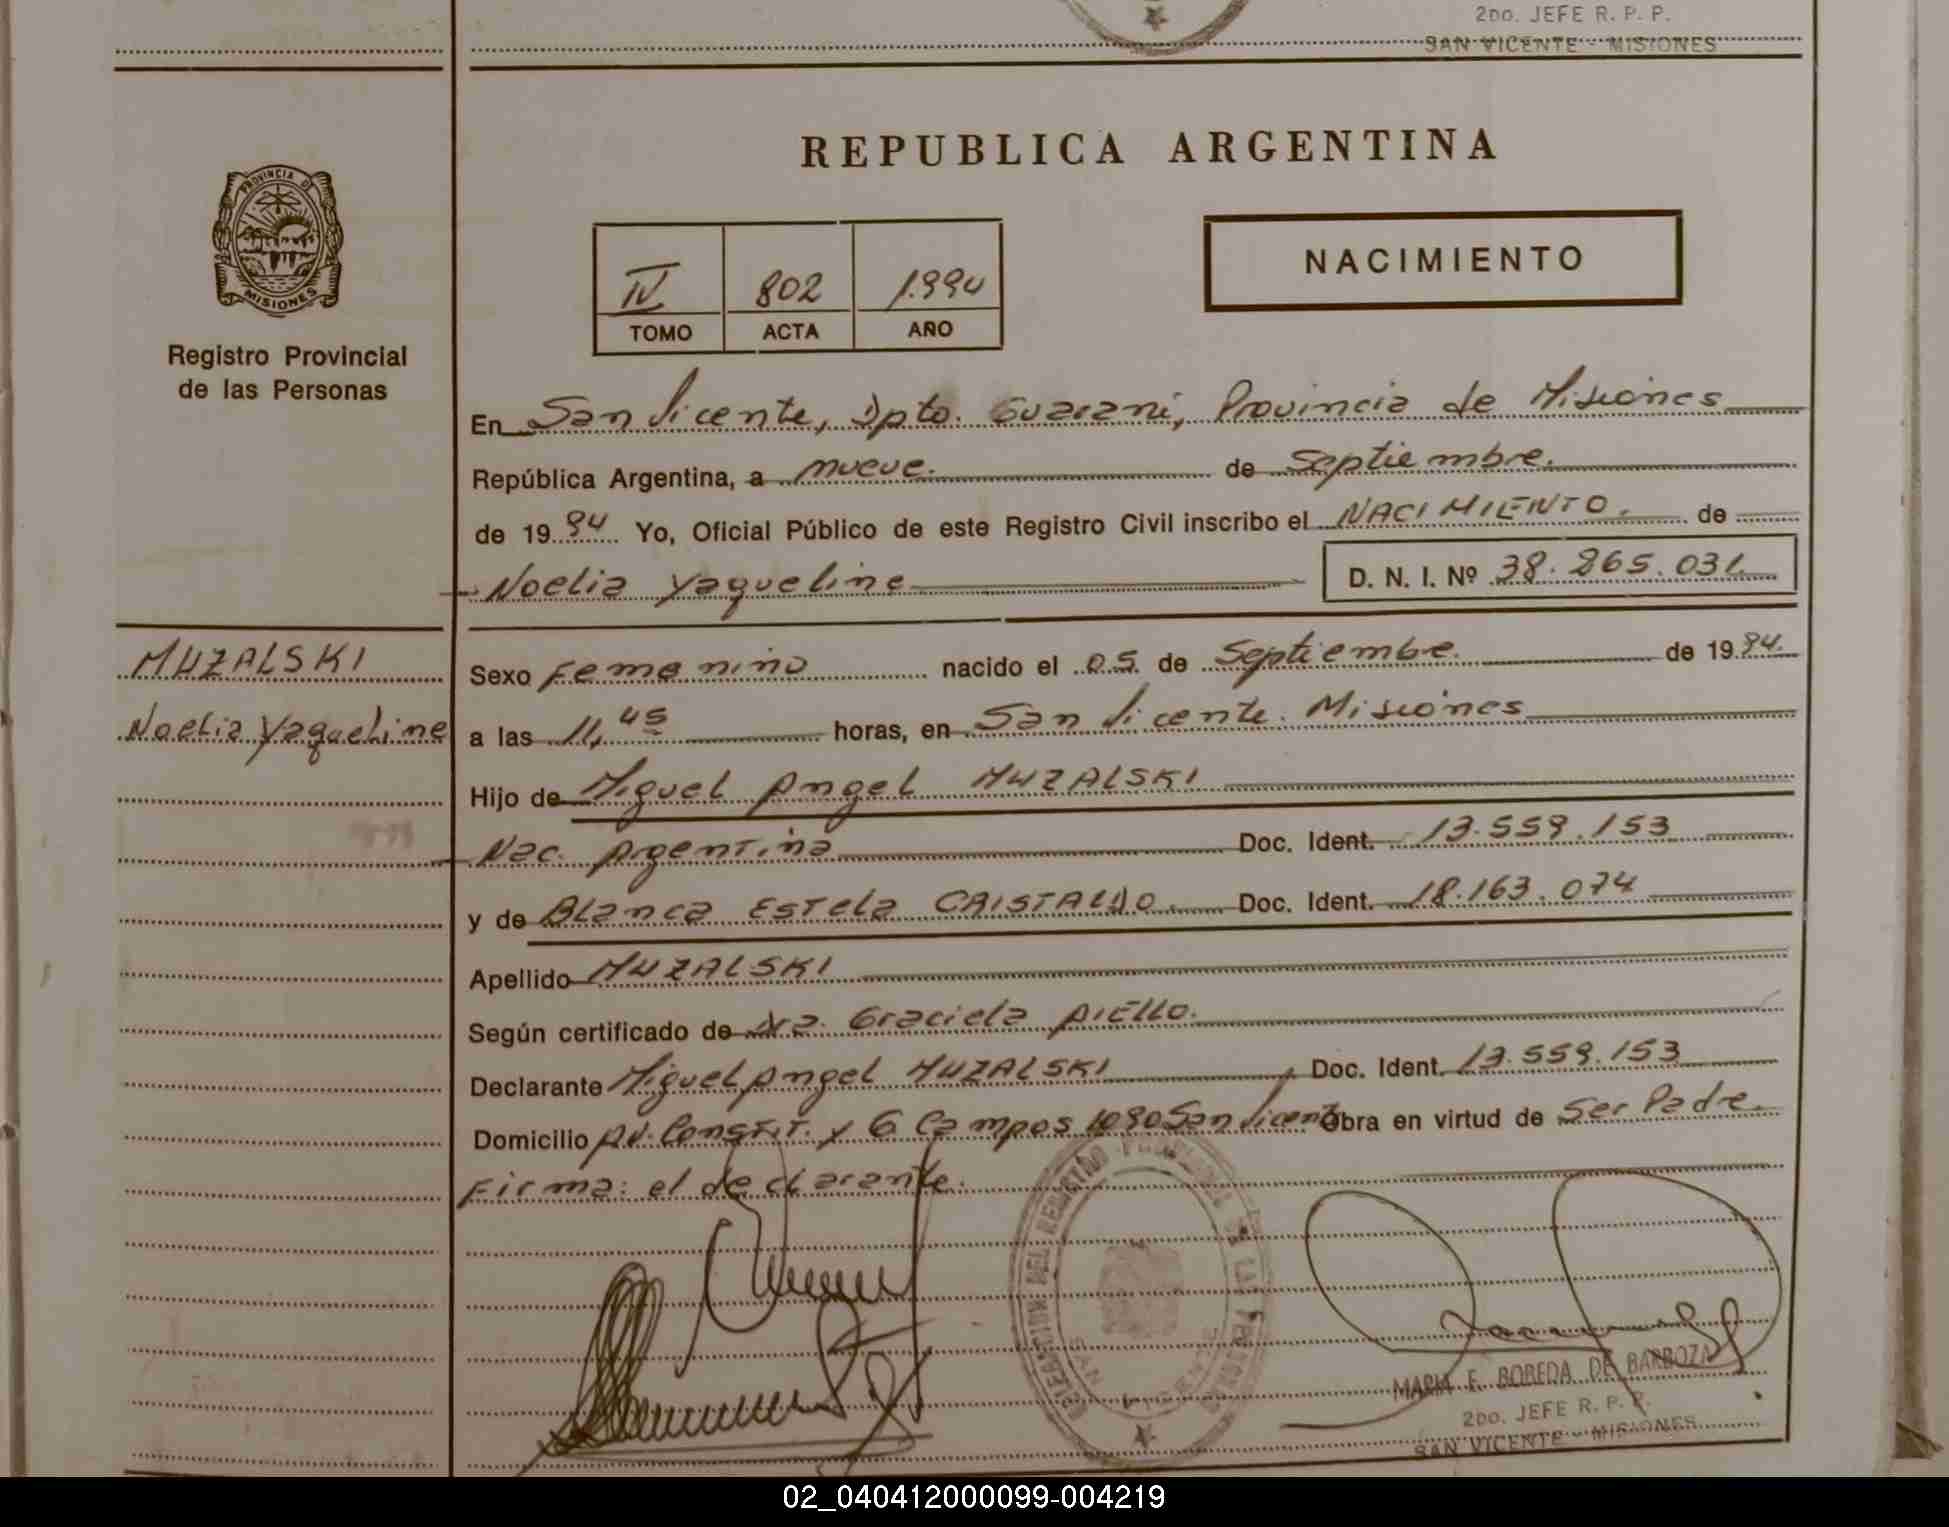 2DO. JEFE R. P. P.
SAN VICENTE - MISIONES
REPUBLICA ARGENTINA
PROVINCIA DE
MISIONES
Registro Provincial
de las Personas
IV 802 1.994
TOMO ACTA AÑO
NACIMIENTO
En San Vicente, Dpto. Guarani, Provincia de Misiones
República Argentina, a nueve. de Septiembre.
de 19 94 Yo, Oficial Público de este Registro Civil inscribo el NACIMIENTO. de
Noelia Yaqueline D. N. I. Nº 38.865.031
MUZALSKI
Noelia Yaqueline
Sexo Femenino nacido el 05 de Septiembre. de 19 94.
a las 11,45 horas, en San Vicente. Misiones
Hijo de Miguel Angel MUZALSKI
Nac. Argentina Doc. Ident. 13.559.153
y de Blanca Estela CRISTALDO. Doc. Ident. 18.163.074
Apellido MUZALSKI
Según certificado de Dra. Graciela
Declarante Miguel Angel MUZALSKI, Doc. Ident. 13.559.153
Domicilio Av. Constit. y G Campos 1090 San Vicente Obra en virtud de Ser Padre.
Firma: el declarante.
DEL REGISTRO PROVINCIAL DE LAS PERSONAS
SAN VICENTE
MARIA E. BOBEDA DE BARBOZA
2DO. JEFE R. P. P.
SAN VICENTE - MISIONES
02_040412000099-004219